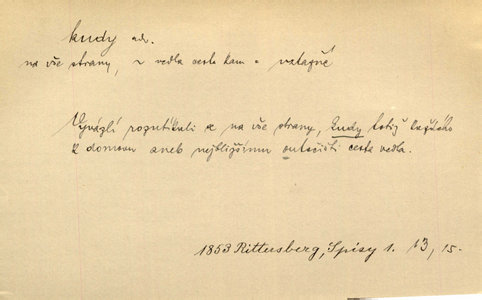 kudy adv.
na vše strany, z vedla cesta kam = vztažné
Vyváglí rozutíkali se na vše strany, kudy totiž každého
k domovu aneb nejbližšímu outočišti cesta vedla.
1853 Rittersberg, Spisy 1. 13, 15.